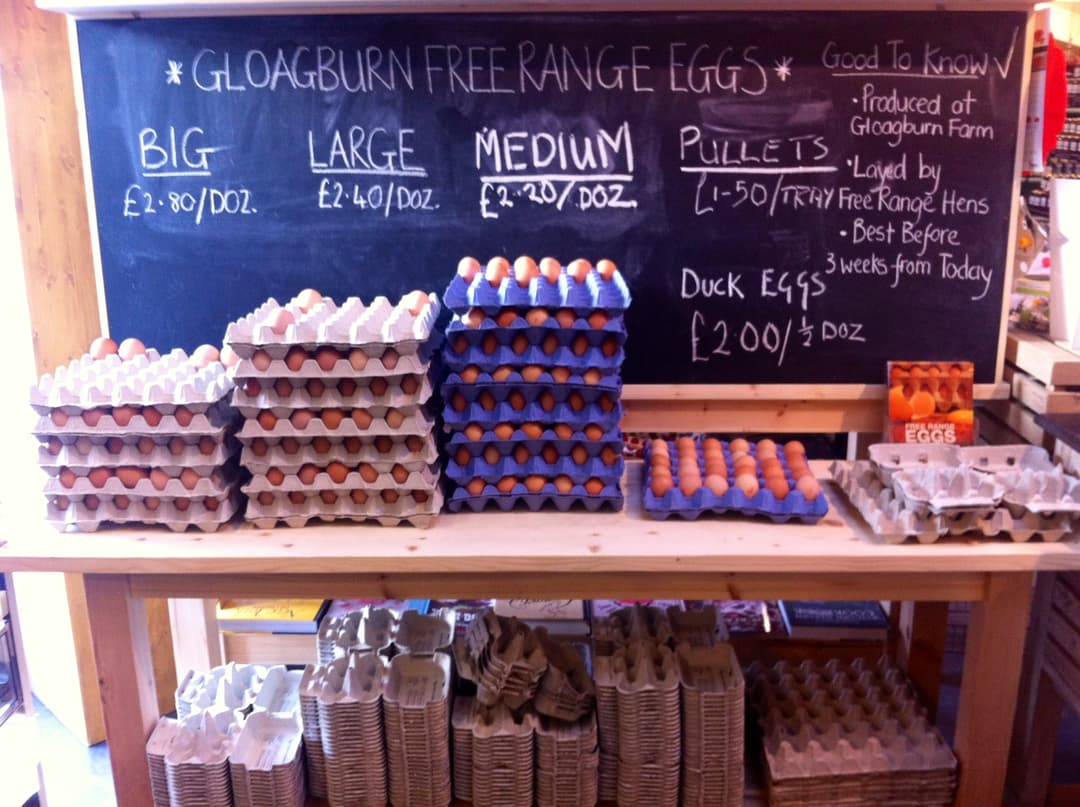 * GLOAGBURN FREE RANGE EGGS *
BIG
£2.80/DOZ.
LARGE
£2.40/DOZ.
MEDIUM
£2.20/DOZ.
PULLETS
£1-50/TRAY
DUCK EGGS
£2.00/½ DOZ
GOOD TO KNOW ✓
• Produced at
Gloagburn Farm
• Layed by
Free Range Hens
• Best Before
3 weeks from Today
FREE RANGE
EGGS